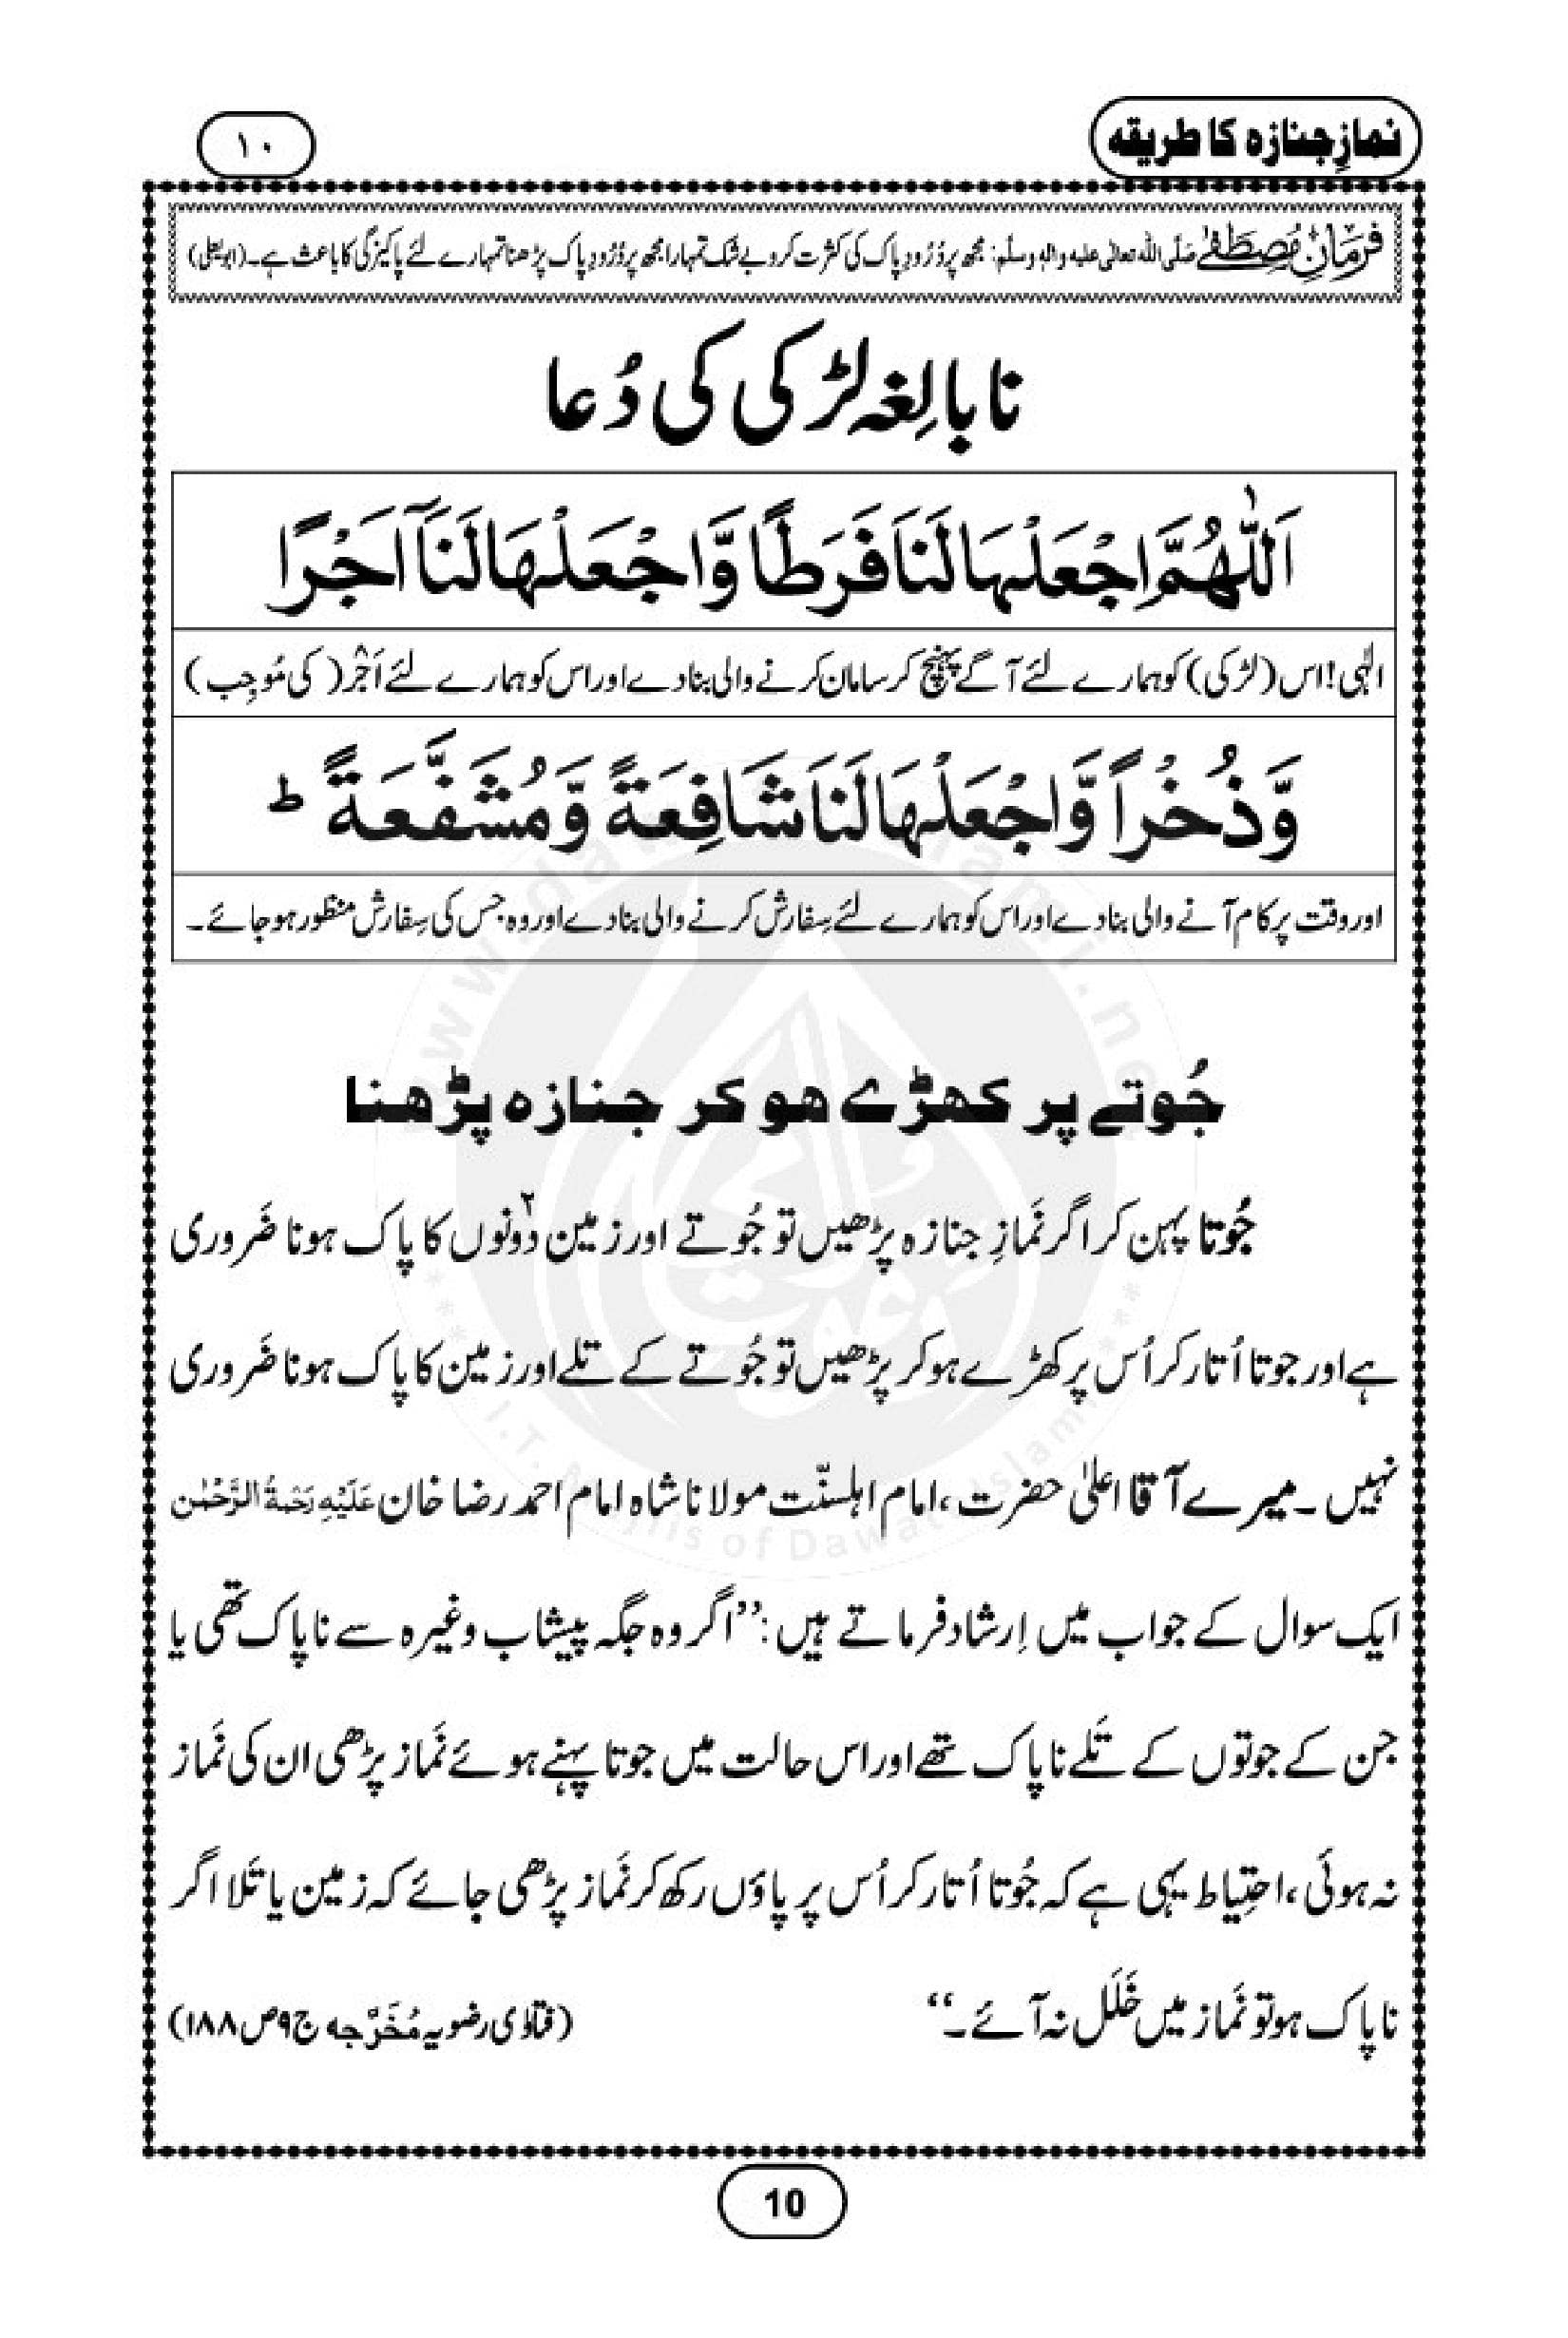 نمازِ جنازہ کا طریقہ
۱۰
فرمانِ مُصطَفٰے صَلَّی اللہ تعالٰی علیہ واٰلہٖ وسلَّم: مجھ پر دُرُودِ پاک کی کثرت کرو بے شک تمہارا مجھ پر دُرُودِ پاک پڑھنا تمہارے لئے پاکیزگی کا باعث ہے۔ (ابو یعلی)
نابالِغہ لڑکی کی دُعا
اَللّٰهُمَّ اجْعَلْهَا لَنَا فَرَطًا وَّاجْعَلْهَا لَنَآ اَجْرًا
الٰہی! اس (لڑکی) کو ہمارے لئے آگے پہنچ کر سامان کرنے والی بنا دے اور اس کو ہمارے لئے اَجْر (کی مُوجِب)
وَّذُخْرًا وَّاجْعَلْهَا لَنَا شَافِعَةً وَّمُشَفَّعَةً ؕ
اور وقت پر کام آنے والی بنا دے اور اس کو ہمارے لئے سِفارش کرنے والی بنا دے اور وہ جس کی سِفارش منظور ہو جائے۔
جُوتے پر کھڑے ہو کر جنازہ پڑھنا
جُوتا پہن کر اگر نَمازِ جنازہ پڑھیں تو جُوتے اور زمین دونوں کا پاک ہونا ضَروری
ہے اور جوتا اُتار کر اُس پر کھڑے ہو کر پڑھیں تو جُوتے کے تلے اور زمین کا پاک ہونا ضَروری
نہیں۔ میرے آقا اعلیٰ حضرت، امامِ اہلسنّت مولانا شاہ امام احمد رضا خان عَلَیْہِ رَحْمَۃُ الرَّحْمٰن
ایک سوال کے جواب میں اِرشاد فرماتے ہیں: ’’اگر وہ جگہ پیشاب وغیرہ سے ناپاک تھی یا
جن کے جوتوں کے تَلے ناپاک تھے اور اس حالت میں جوتا پہنے ہوئے نَماز پڑھی ان کی نَماز
نہ ہوئی، احتِیاط یہی ہے کہ جُوتا اُتار کر اُس پر پاؤں رکھ کر نَماز پڑھی جائے کہ زمین یا تَلا اگر
ناپاک ہو تو نَماز میں خَلَل نہ آئے۔‘‘ (فتاوٰی رضویہ مُخَرَّجہ ج۹ ص۱۸۸)
10